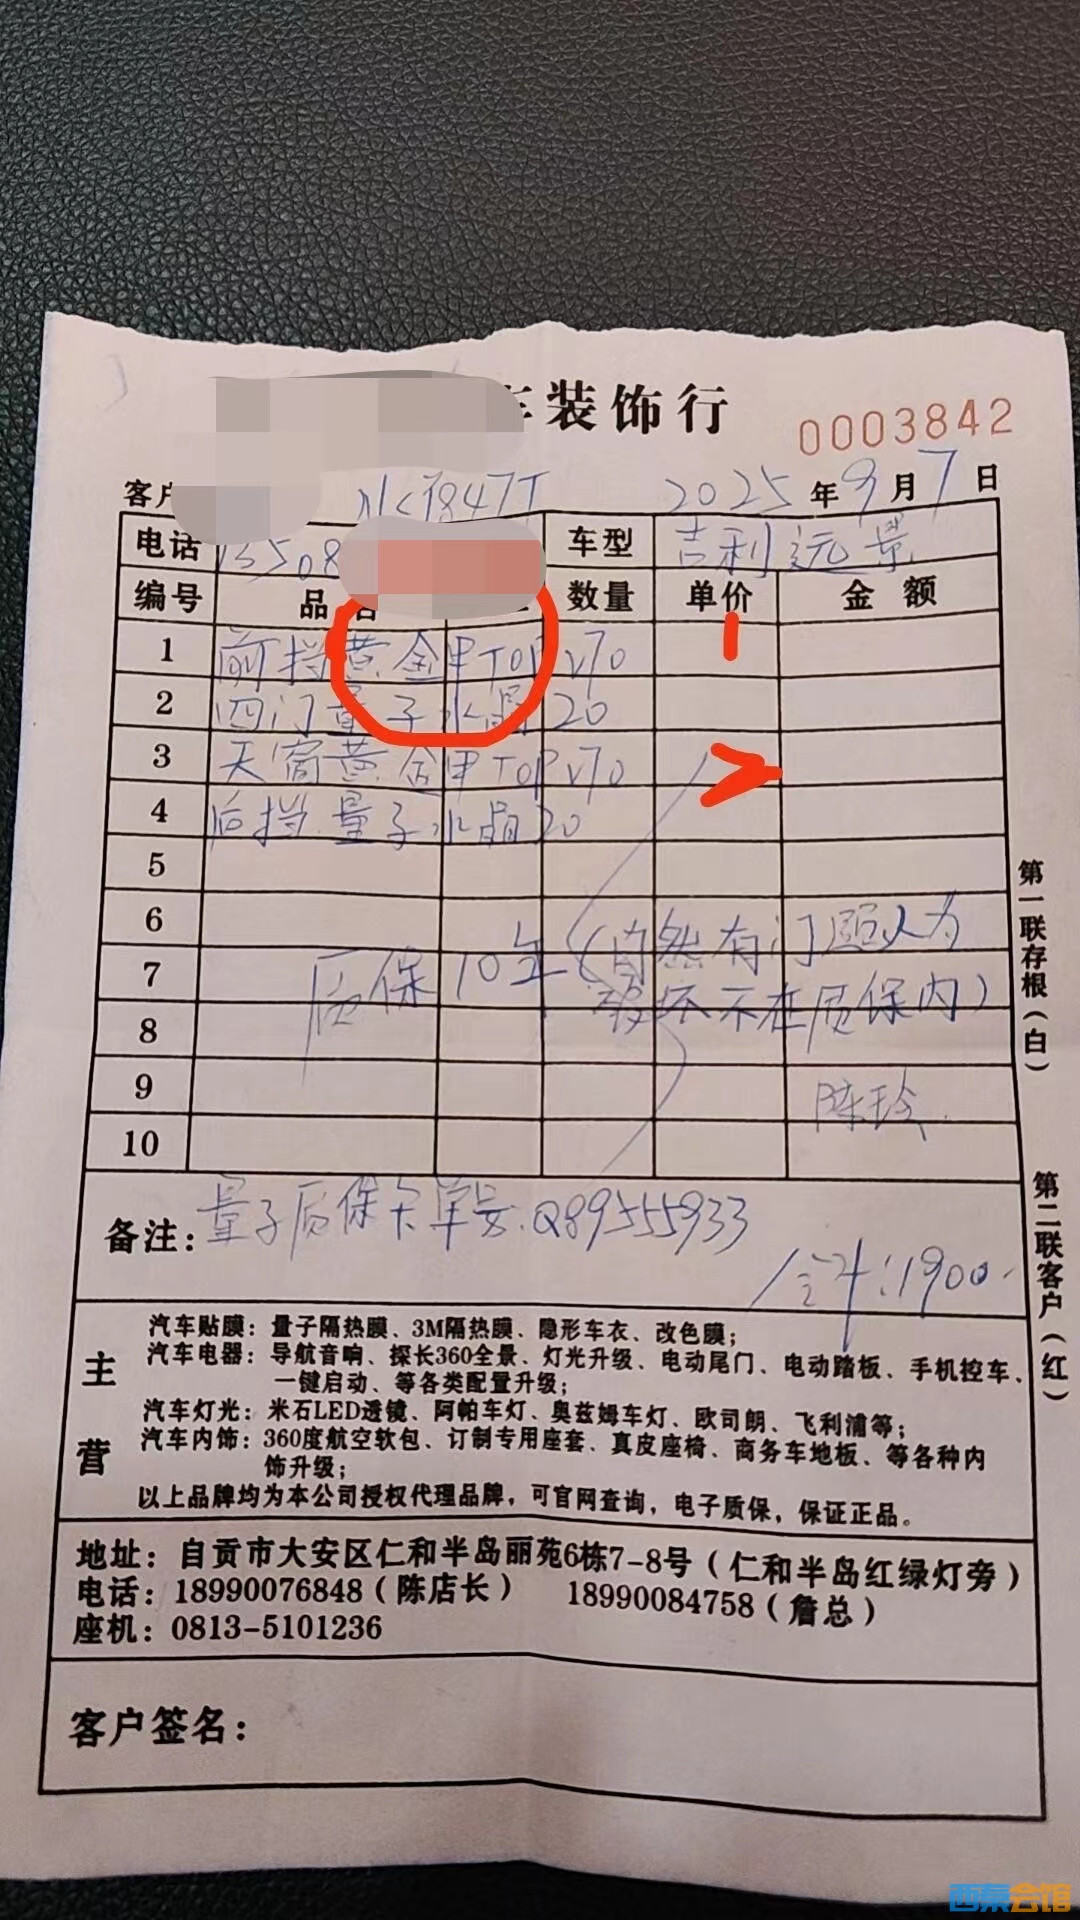 车装饰行
0003842
客户 2025年9月7日
电话 13508 车型 吉利远景
编号 品名 数量 单价 金额
1 前挡黄金甲TOP V70
2 四门量子水晶20
3 天窗黄金甲TOP V70
4 后挡量子水晶20
5
6
7
8
9
10
质保10年(自然有问题人为
破坏不在质保内)
陈玲
备注：量子质保卡单号:Q89555933
合计:1900
第一联存根(白)
第二联客户(红)
主营
汽车贴膜：量子隔热膜、3M隔热膜、隐形车衣、改色膜；
汽车电器：导航音响、探长360全景、灯光升级、电动尾门、电动踏板、手机控车、
一键启动、等各类配置升级；
汽车灯光：米石LED透镜、阿帕车灯、奥兹姆车灯、欧司朗、飞利浦等；
汽车内饰：360度航空软包、订制专用座套、真皮座椅、商务车地板、等各种内
饰升级；
以上品牌均为本公司授权代理品牌，可官网查询，电子质保，保证正品。
地址：自贡市大安区仁和半岛丽苑6栋7-8号(仁和半岛红绿灯旁)
电话：18990076848(陈店长) 18990084758(詹总)
座机：0813-5101236
客户签名：
西秦会馆